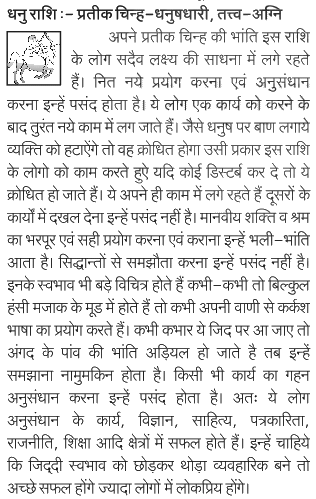 धनु राशि :– प्रतीक चिन्ह–धनुषधारी, तत्त्व–अग्नि
अपने प्रतीक चिन्ह की भांति इस राशि
के लोग सदैव लक्ष्य की साधना में लगे रहते
हैं। नित नये प्रयोग करना एवं अनुसंधान
करना इन्हें पसंद होता है। ये लोग एक कार्य को करने के
बाद तुरंत नये काम में लग जाते हैं। जैसे धनुष पर बाण लगाये
व्यक्ति को हटाऐंगे तो वह क्रोधित होगा उसी प्रकार इस राशि
के लोगो को काम करते हुऐ यदि कोई डिस्टर्ब कर दे तो ये
क्रोधित हो जाते हैं। ये अपने ही काम में लगे रहते हैं दूसरों के
कार्यों में दखल देना इन्हें पसंद नहीं है। मानवीय शक्ति व श्रम
का भरपूर एवं सही प्रयोग करना एवं कराना इन्हें भली–भांति
आता है। सिद्धान्तों से समझौता करना इन्हें पसंद नहीं है।
इनके स्वभाव भी बड़े विचित्र होते हैं कभी–कभी तो बिल्कुल
हंसी मजाक के मूड में होते हैं तो कभी अपनी वाणी से कर्कश
भाषा का प्रयोग करते हैं। कभी कभार ये जिद पर आ जाए तो
अंगद के पांव की भांति अड़ियल हो जाते है तब इन्हें
समझाना नामुमकिन होता है। किसी भी कार्य का गहन
अनुसंधान करना इन्हें पसंद होता है। अतः ये लोग
अनुसंधान के कार्य, विज्ञान, साहित्य, पत्रकारिता,
राजनीति, शिक्षा आदि क्षेत्रों में सफल होते हैं। इन्हें चाहिये
कि जिद्दी स्वभाव को छोड़कर थोड़ा व्यवहारिक बने तो
अच्छे सफल होंगे ज्यादा लोगों में लोकप्रिय होंगे।